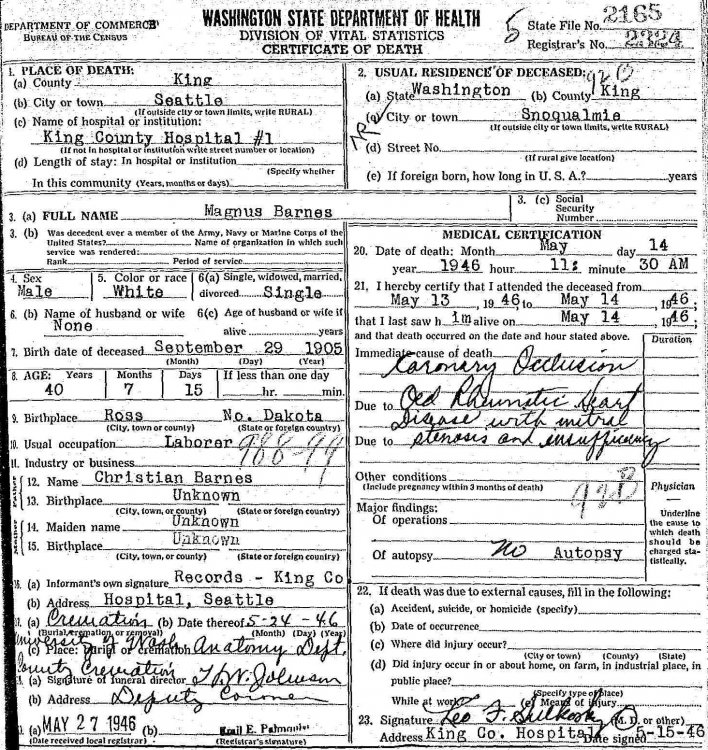 DEPARTMENT OF COMMERCE
BUREAU OF THE CENSUS
WASHINGTON STATE DEPARTMENT OF HEALTH
DIVISION OF VITAL STATISTICS
CERTIFICATE OF DEATH
5
State File No. 2165
Registrar's No. 2224
1. PLACE OF DEATH:
(a) County King
(b) City or town Seattle
(If outside city or town limits, write RURAL)
(c) Name of hospital or institution:
King County Hospital #1
(If not in hospital or institution write street number or location)
(d) Length of stay: In hospital or institution
(Specify whether
In this community (Years, months or days)
2. USUAL RESIDENCE OF DECEASED:
(a) State Washington (b) County King
(c) City or town Snoqualmie
(If outside city or town limits, write RURAL)
(d) Street No.
(If rural give location)
(e) If foreign born, how long in U. S. A.? years
3. (a) FULL NAME Magnus Barnes
3. (c) Social Security Number
3. (b) Was decedent ever a member of the Army, Navy or Marine Corps of the
United States? Name of organization in which such
service was rendered:
Rank Period of service
4. Sex Male
5. Color or race White
6(a) Single, widowed, married, divorced Single
6. (b) Name of husband or wife None
6(c) Age of husband or wife if alive years
7. Birth date of deceased September 29 1905
(Month) (Day) (Year)
8. AGE: Years Months Days If less than one day
40 7 15 hr. min.
9. Birthplace Ross No. Dakota
(City, town, or county) (State or foreign country)
10. Usual occupation Laborer 988-99
11. Industry or business
Father
12. Name Christian Barnes
13. Birthplace Unknown
(City, town, or county) (State or foreign country)
Mother
14. Maiden name Unknown
15. Birthplace Unknown
(City, town, or county) (State or foreign country)
16. (a) Informant's own signature Records - King Co
(b) Address Hospital, Seattle
(a) Cremation (b) Date thereof 5-24-46
(Burial, cremation, or removal) (Month) (Day) (Year)
University of Wash Anatomy Dept.
(c) Place: burial or cremation
County Cremation
(a) Signature of funeral director
(b) Address Deputy Coroner
(a) MAY 27 1946 (b) Emil E. Palmquist
(Date received local registrar) (Registrar's signature)
MEDICAL CERTIFICATION
20. Date of death: Month May day 14
year 1946 hour 11: minute 30 AM
21. I hereby certify that I attended the deceased from
May 13, 1946 to May 14 1946;
that I last saw him alive on May 14, 1946;
and that death occurred on the date and hour stated above.
Duration
Immediate cause of death Coronery Occlusion
Due to Old Rhumatic Heart
Disease with mitral
Due to stenosis and insufficiency
Other conditions
(Include pregnancy within 3 months of death)
Major findings:
Of operations
Of autopsy No Autopsy
Physician
Underline the cause to which death should be charged statistically.
22. If death was due to external causes, fill in the following:
(a) Accident, suicide, or homicide (specify)
(b) Date of occurrence
(c) Where did injury occur?
(City or town) (County) (State)
(d) Did injury occur in or about home, on farm, in industrial place, in
public place?
(Specify type of place)
While at work? (e) Means of injury
23. Signature Leo F. (M. D. or other)
Address King Co. Hospital Date signed 5-15-46